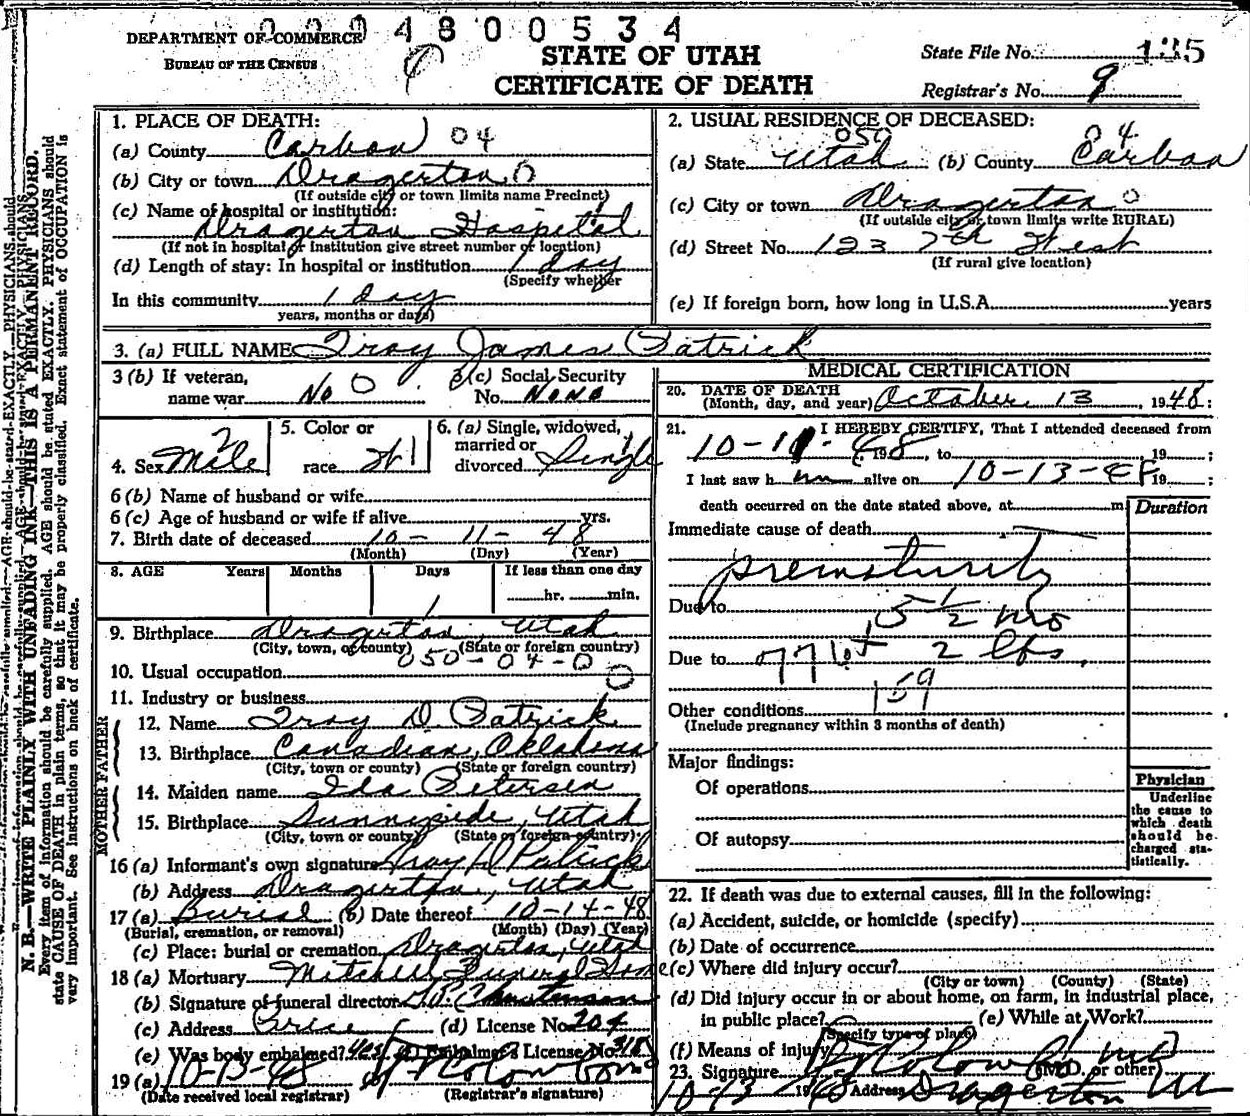 0 0 0 4 8 0 0 5 3 4
DEPARTMENT OF COMMERCE
BUREAU OF THE CENSUS
STATE OF UTAH
CERTIFICATE OF DEATH
State File No. 135
Registrar's No. 9
N. B.—WRITE PLAINLY WITH UNFADING INK—THIS IS A PERMANENT RECORD.
Every item of information should be carefully supplied. AGE should be stated EXACTLY. PHYSICIANS should
state CAUSE OF DEATH in plain terms, so that it may be properly classified. Exact statement of OCCUPATION is
very important. See instructions on back of certificate.
1. PLACE OF DEATH:
(a) County Carbon 04
(b) City or town Dragerton 0
(If outside city or town limits name Precinct)
(c) Name of hospital or institution:
Dragerton Hospital
(If not in hospital or institution give street number or location)
(d) Length of stay: In hospital or institution 1 day
(Specify whether
In this community 1 day
years, months or days)
2. USUAL RESIDENCE OF DECEASED:
050 04
(a) State Utah (b) County Carbon
(c) City or town Dragerton 0
(If outside city or town limits write RURAL)
(d) Street No. 123 7th West
(If rural give location)
(e) If foreign born, how long in U.S.A. years
3. (a) FULL NAME Troy James Patrick
3 (b) If veteran, name war No 0
3 (c) Social Security No. None
4. Sex Male 2
5. Color or race W 1
6. (a) Single, widowed, married or divorced Single 1
6 (b) Name of husband or wife
6 (c) Age of husband or wife if alive yrs.
7. Birth date of deceased 10- 11- 48
(Month) (Day) (Year)
8. AGE Years Months Days If less than one day
1 hr. min.
9. Birthplace Dragerton, Utah
(City, town, or county) (State or foreign country)
050-04-0
10. Usual occupation 0
11. Industry or business
FATHER
12. Name Troy D. Patrick
13. Birthplace Canadian, Oklahoma
(City, town or county) (State or foreign country)
MOTHER
14. Maiden name Ida Petersen
15. Birthplace Sunnyside, Utah
(City, town or county) (State or foreign country)
16 (a) Informant's own signature Troy D Patrick
(b) Address Dragerton, Utah
17 (a) Burial (b) Date thereof 10-14-48
(Burial, cremation, or removal) (Month) (Day) (Year)
(c) Place: burial or cremation Dragerton, Utah
18 (a) Mortuary Mitchell Funeral Home
(b) Signature of funeral director Christensen
(c) Address Price (d) License No. 204
(e) Was body embalmed? yes (f) Embalmer's License No. 318
19 (a) 10-13-48 (b)
(Date received local registrar) (Registrar's signature)
MEDICAL CERTIFICATION
20. DATE OF DEATH
(Month, day, and year) October 13 1948;
21. I HEREBY CERTIFY, That I attended deceased from
10-11-48 19 , to 19 ;
I last saw h im alive on 10-13-48 19 ;
death occurred on the date stated above, at m
Duration
Immediate cause of death
prematurity
Due to 5 1/2 mo
Due to 2 lbs.
159
Other conditions
(Include pregnancy within 3 months of death)
Major findings:
Of operations
Of autopsy
Physician
Underline
the cause to
which death
should be
charged sta-
tistically.
22. If death was due to external causes, fill in the following:
(a) Accident, suicide, or homicide (specify)
(b) Date of occurrence
(c) Where did injury occur?
(City or town) (County) (State)
(d) Did injury occur in or about home, on farm, in industrial place,
in public place? (e) While at Work?
(Specify type of place)
(f) Means of injury
23. Signature MD (M.D. or other)
10-13 1948 Address Dragerton Ut